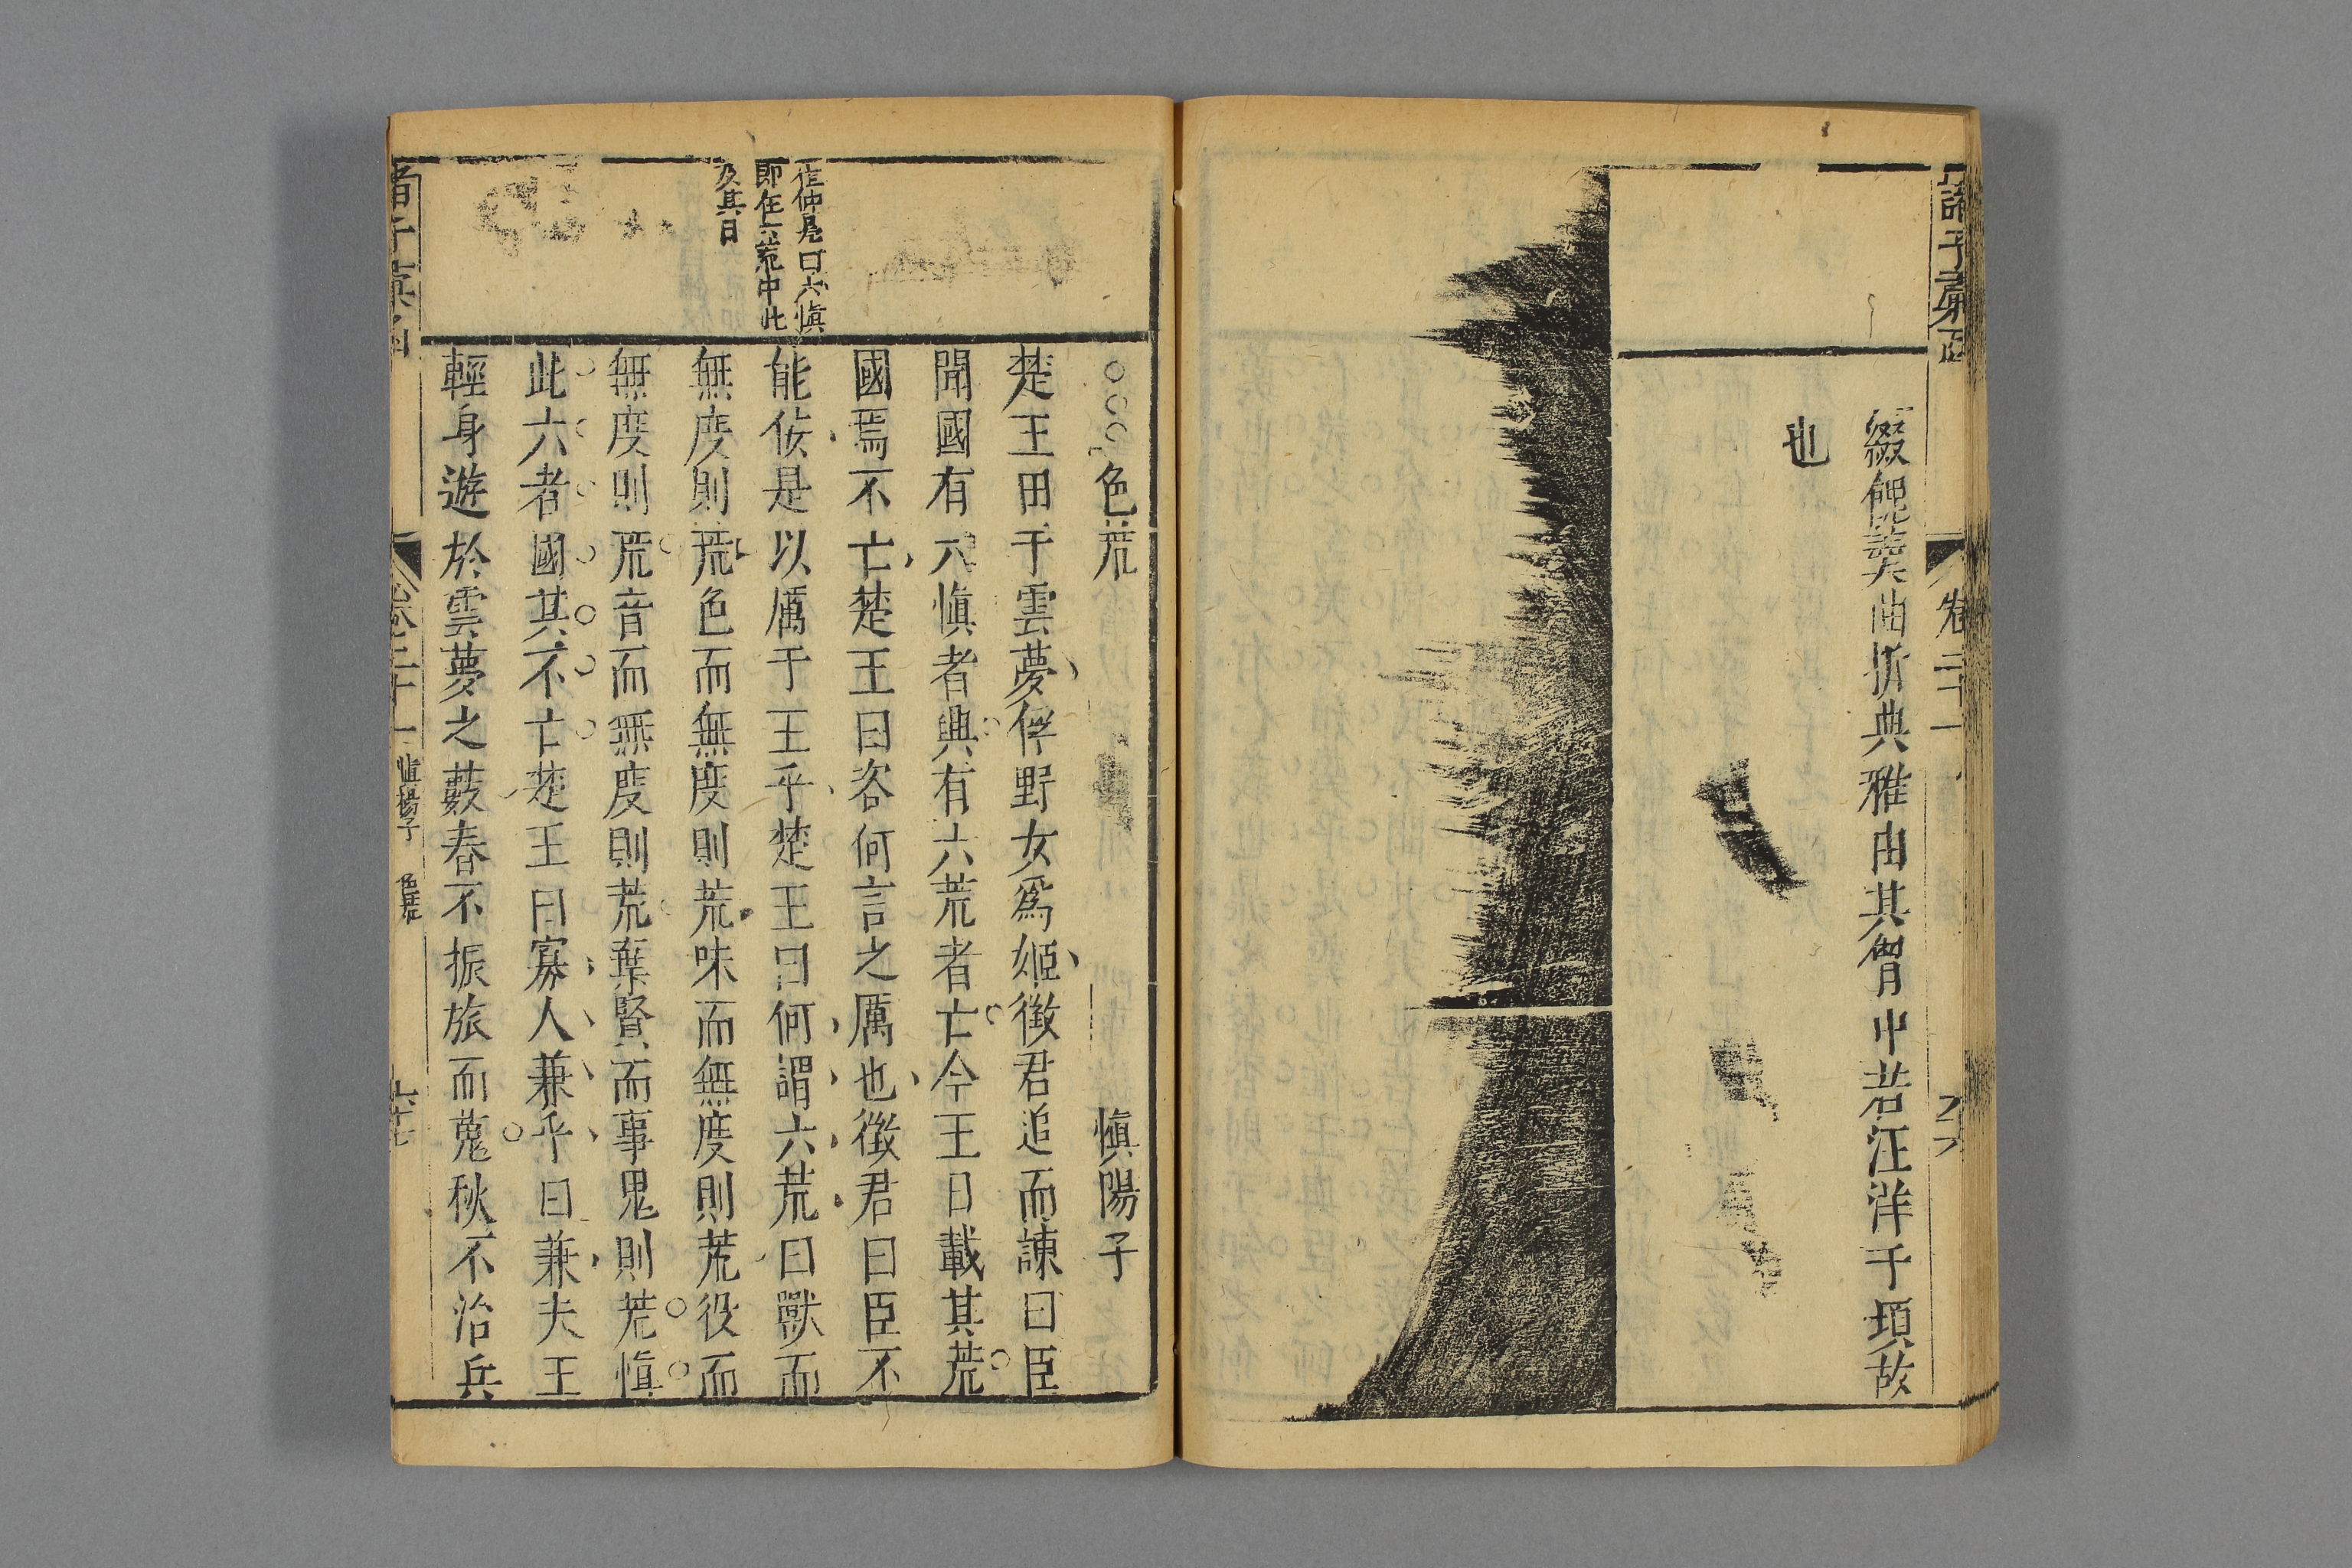 綴俔美曲折典雅由其胷中若汪洋千頃故
也
卷二十一
色荒 慎陽子
楚王田于雲夢俘野女爲姬徵君追而諫曰臣
聞國有六慎者興有六荒者亡今王日載其荒
國焉不亡楚王曰咨何言之厲也徵君曰臣不
能佞是以厲于王乎楚王曰何謂六荒曰獸而
無度則荒色而無度則荒味而無度則荒役而
無度則荒音而無度則荒棄賢而事鬼則荒慎
此六者國其不亡楚王曰寡人兼乎曰兼夫王
輕身遊於雲夢之藪春不振旅而蒐秋不治兵
崔仲鳧曰六慎
即在六荒中此
及其目
卷二十一
慎陽子
色荒